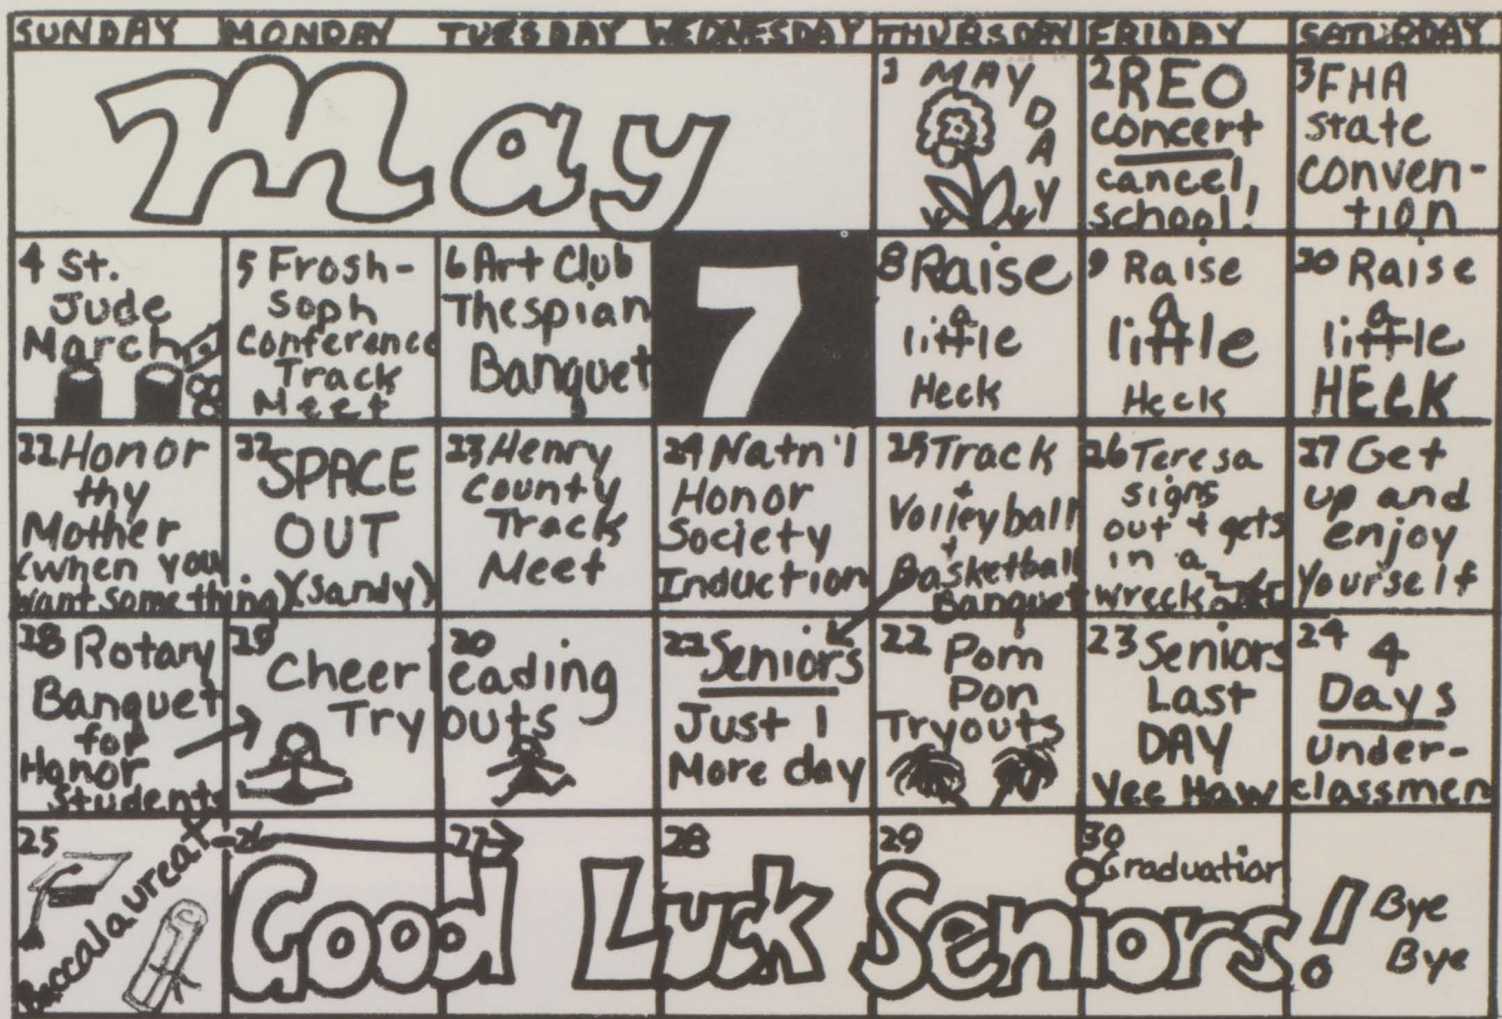 SUNDAY MONDAY TUESDAY WEDNESDAY THURSDAY FRIDAY SATURDAY
May
1 MAY
DAY
2 REO
concert
cancel
school!
3 FHA
state
conven-
tion
4 St.
Jude
March
5 Frosh-
Soph
Conference
Track
Meet
6 Art Club
Thespian
Banquet
7
8 Raise
a
little
Heck
9 Raise
a
little
Heck
10 Raise
a
little
HECK
11 Honor
thy
Mother
(when you
want something)
12 SPACE
OUT
(Sandy)
13 Henry
County
Track
Meet
14 Natn'l
Honor
Society
Induction
15 Track
+
Volleyball
+
Basketball
Banquet
16 Teresa
signs
out + gets
in a
wreck
17 Get
up and
enjoy
yourself
18 Rotary
Banquet
for
Honor
Students
19 20
Cheerleading
Tryouts
21 Seniors
Just 1
More day
22 Pom
Pon
Tryouts
23 Seniors
Last
DAY
Yee Haw
24 4
Days
Under-
classmen
25
Baccalaureat
26 27 28 29 30
Graduation
Good Luck Seniors!
Bye
Bye